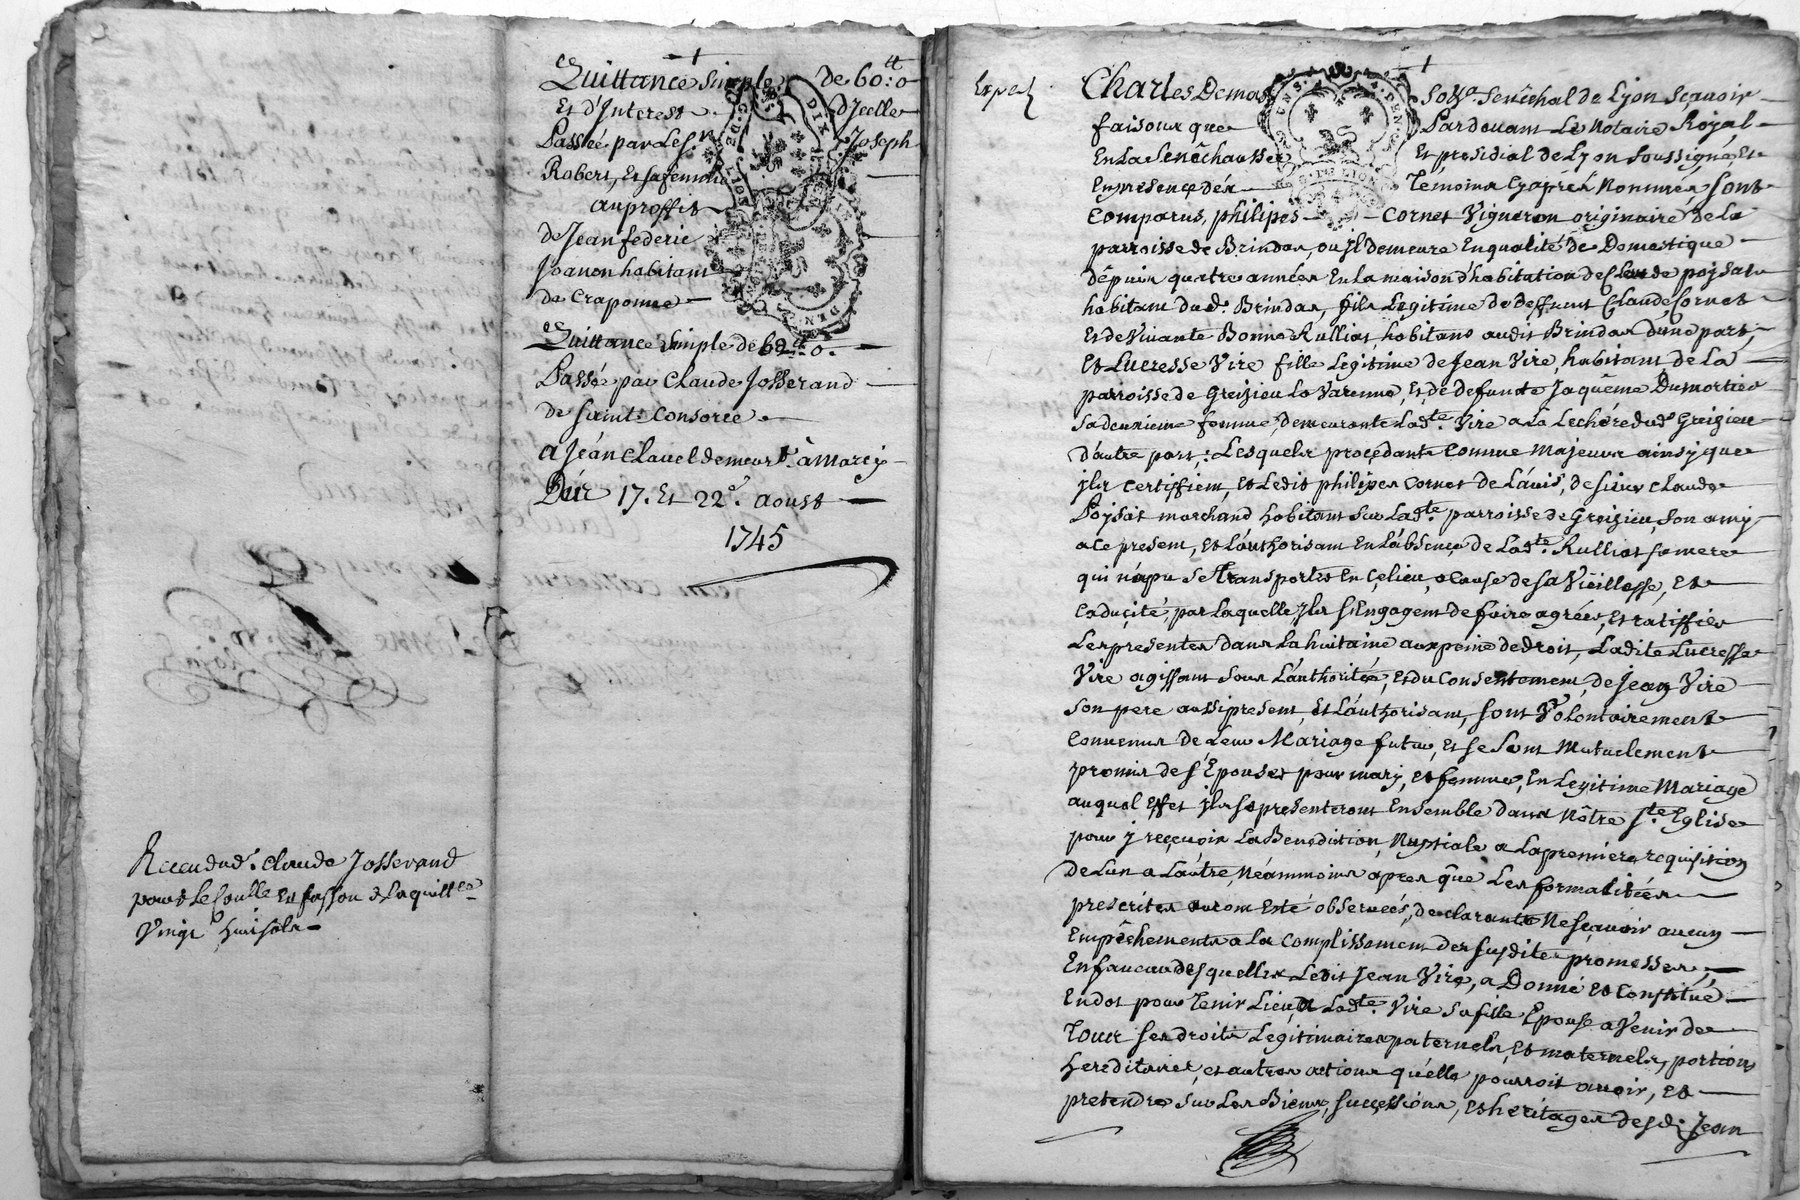 Quittance simple de 60ᵗᵗ:0
Et d'Interest d'Jcelle
Passée par Le Sʳ Joseph
Robert, Et sa femme
au proffit
de Jean federic
Joanon habitant
de Craponne
Quittance simple de 60ᵗᵗ:0.
Passée par Claude Josserand
de saint Consorce
a Jean Clavel demeurᵗ. à Marcy
Des 17. Et 22ᵉ. Aoust
1745
Receu dudᵗ. Claude Josserand
pour Le Conlle Et fasson de la quittᶜᵉ
Vingt huit sols
Exped
Charles Demas Sossᵉ. Senêchal de Lyon Sçavoir
faisons que Pardevant Le Notaire Royal
En La Senêchaussée Et presidial de Lyon soussigné, Et
En presence des Temoins Cy aprés Nommés, sont
Comparus, philipes Cornet Vigneron originaire de La
parroisse de Brindas, ou Jl demeure En qualité de Domestique
dépuis quatre années En La maison d'habitation de Claude poysat
habitant dudᵗ. Brindas, fils Legitime de Deffunt Claude Cornet
Et de Vivante Bonne Rulliat, habitans audit Brindas d'une part,
Et Lucresse Vire fille Legitime de Jean Vire, habitant de La
parroisse de Greizieu La Varenne, Et de defunte Jaquême Dumortier
Sa deuxieme femme, demeurante Ladᵗᵉ. Vire a La Lechere dudᵗ Greizieu
d'autre part: Lesquels procédants Comme Majeurs ainsy que
jls Certiffient, Et Ledit philipes Cornet de L'avis, de sieur Claude
Poysat marchand habitant sur Ladᵗᵉ. parroisse de Greizieu, son amy
a Ce present, Et L'authorisant En L'absence de Ladᵗᵉ. Rulliat sa mere
qui n'a pu se transporter En Ce lieu, a Cause de sa Vieillesse, Et
Caducité, par Laquelle Jls s'Engagent de faire agréer, Et ratiffier
Les presentes dans La huitaine aux peine de droit, Ladite Lucresse
Vire agissant sous L'authoritée, Et du Consentement, de Jean Vire
Son pere aussi present, Et L'authorisant, sont Volontairement
Convenus de Leur Mariage futur, Et se sont Mutuelement
promis de s'Epouser pour mary, et femme, En Legitime Mariage
auquel Effet jls se presenteront Ensemble dans Nôtre Sᵗᵉ. Eglise
pour y reçevoir La Benediction Nuptiale a La premiere requisition
De L'un a L'autre, Néammoins apres que Les formalitées
prescrites auront Esté observées, declarants Ne sçavoir aucun
Empêchements a La Complissement des susdites promesses,
En faveur desquelles Ledit Jean Vire, a Donné Et Constitué
En dot pour Tenir Lieu a Ladᵗᵉ. Vire Sa fille Epouse a Venir de
Tous ses droits Legitimaires paternels, Et maternels, portions
hereditaires, et autres actions qu'elle pourroit avoir, Et
pretendre sur Les Biens, successions, Et heritages desdᵗˢ Jean